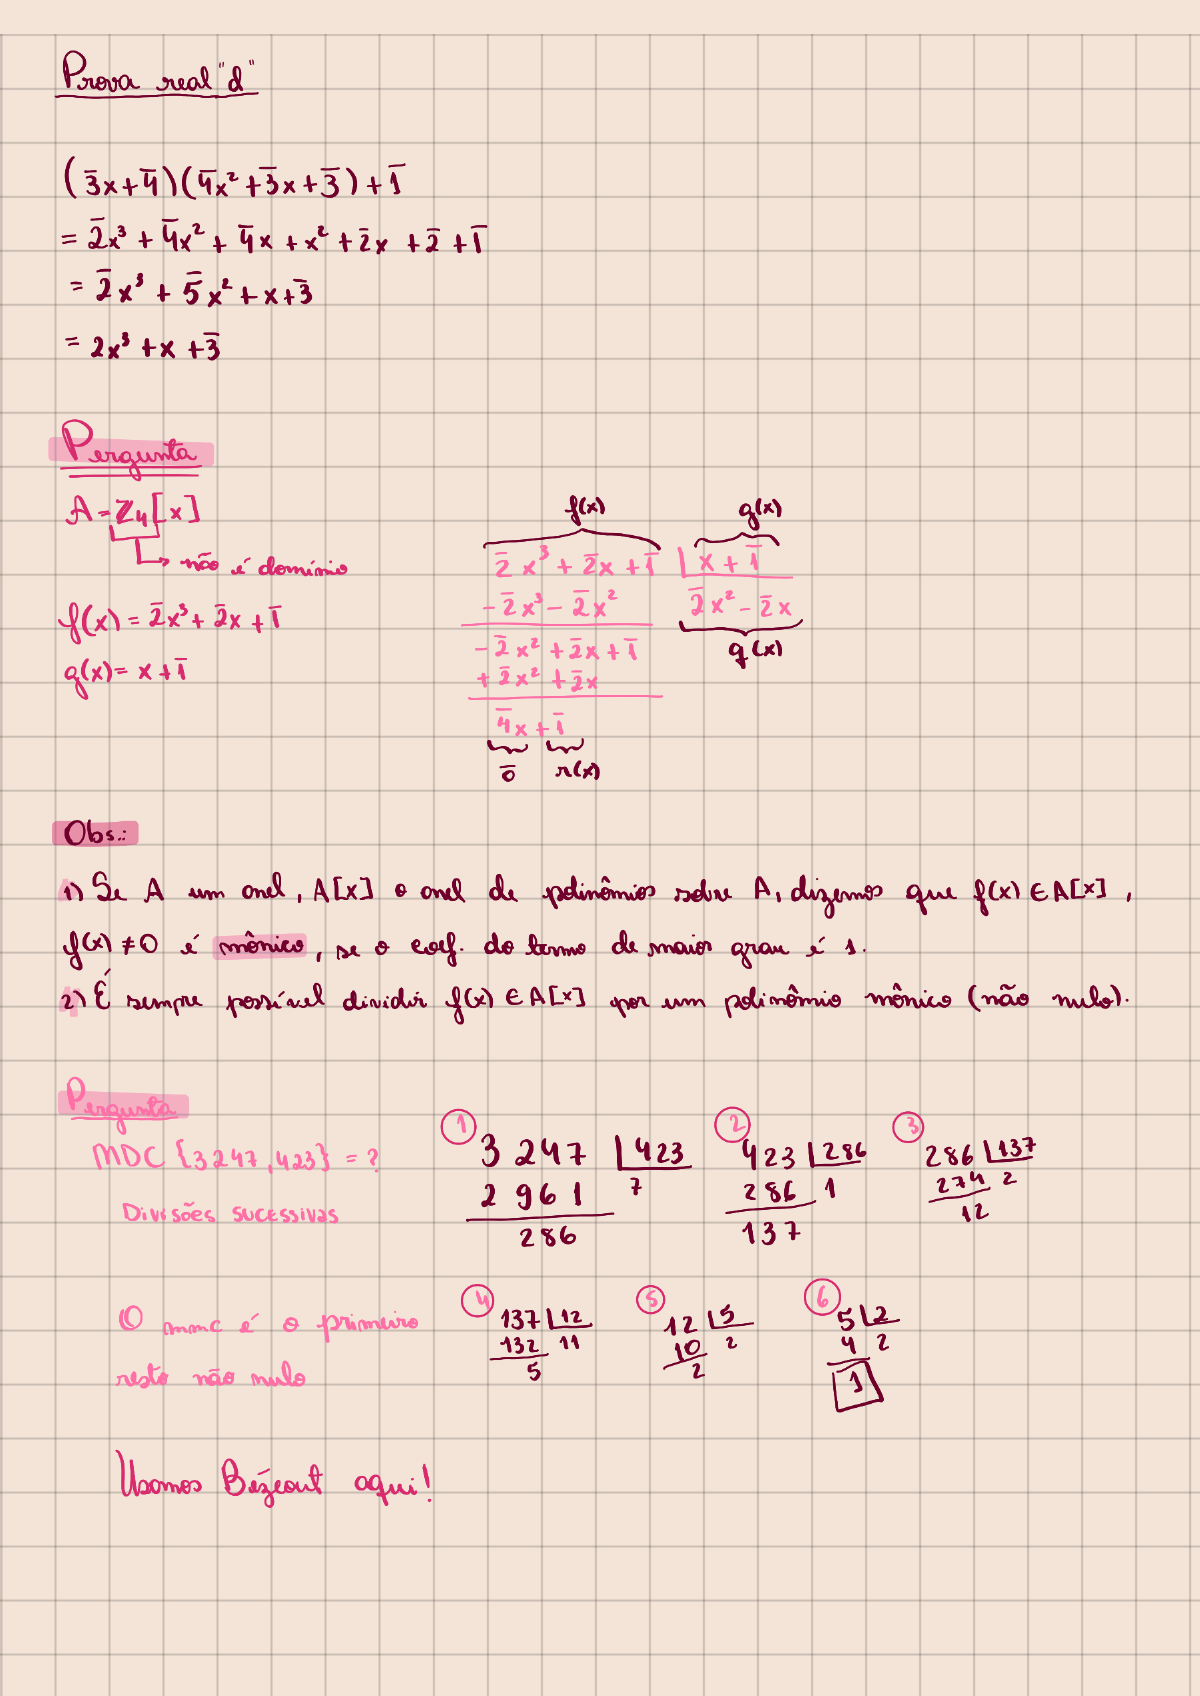 Prova real "d"
(3̅x+4̅)(4̅x²+3̅x+3̅)+1̅
= 2̅x³ + 4̅x² + 4̅x + x² + 2̅x + 2̅ + 1̅
= 2̅x³ + 5̅x² + x + 3̅
= 2x³ + x + 3̅
Pergunta
A = ℤ₄[x]
não é domínio
f(x) = 2̅x³ + 2̅x + 1̅
g(x) = x + 1̅
f(x) g(x)
2̅x³ + 2̅x + 1̅ x + 1̅
- 2̅x³ - 2̅x² 2̅x² - 2̅x
- 2̅x² + 2̅x + 1̅ q(x)
+ 2̅x² + 2̅x
4̅x + 1̅
0̅ r(x)
Obs.:
1) Se A um anel, A[x] o anel de polinômios sobre A, dizemos que f(x) ∈ A[x],
f(x) ≠ 0 é mônico, se o coef. do termo de maior grau é 1.
2) É sempre possível dividir f(x) ∈ A[x] por um polinômio mônico (não nulo).
Pergunta
MDC {3247, 423} = ?
Divisões sucessivas
1 2 3
3247 423 423 286 286 137
2961 7 286 1 274 2
286 137 12
O mmc é o primeiro
resto não nulo
4 5 6
137 12 12 5 5 2
132 11 10 2 4 2
5 2 1
Usamos Bézout aqui!